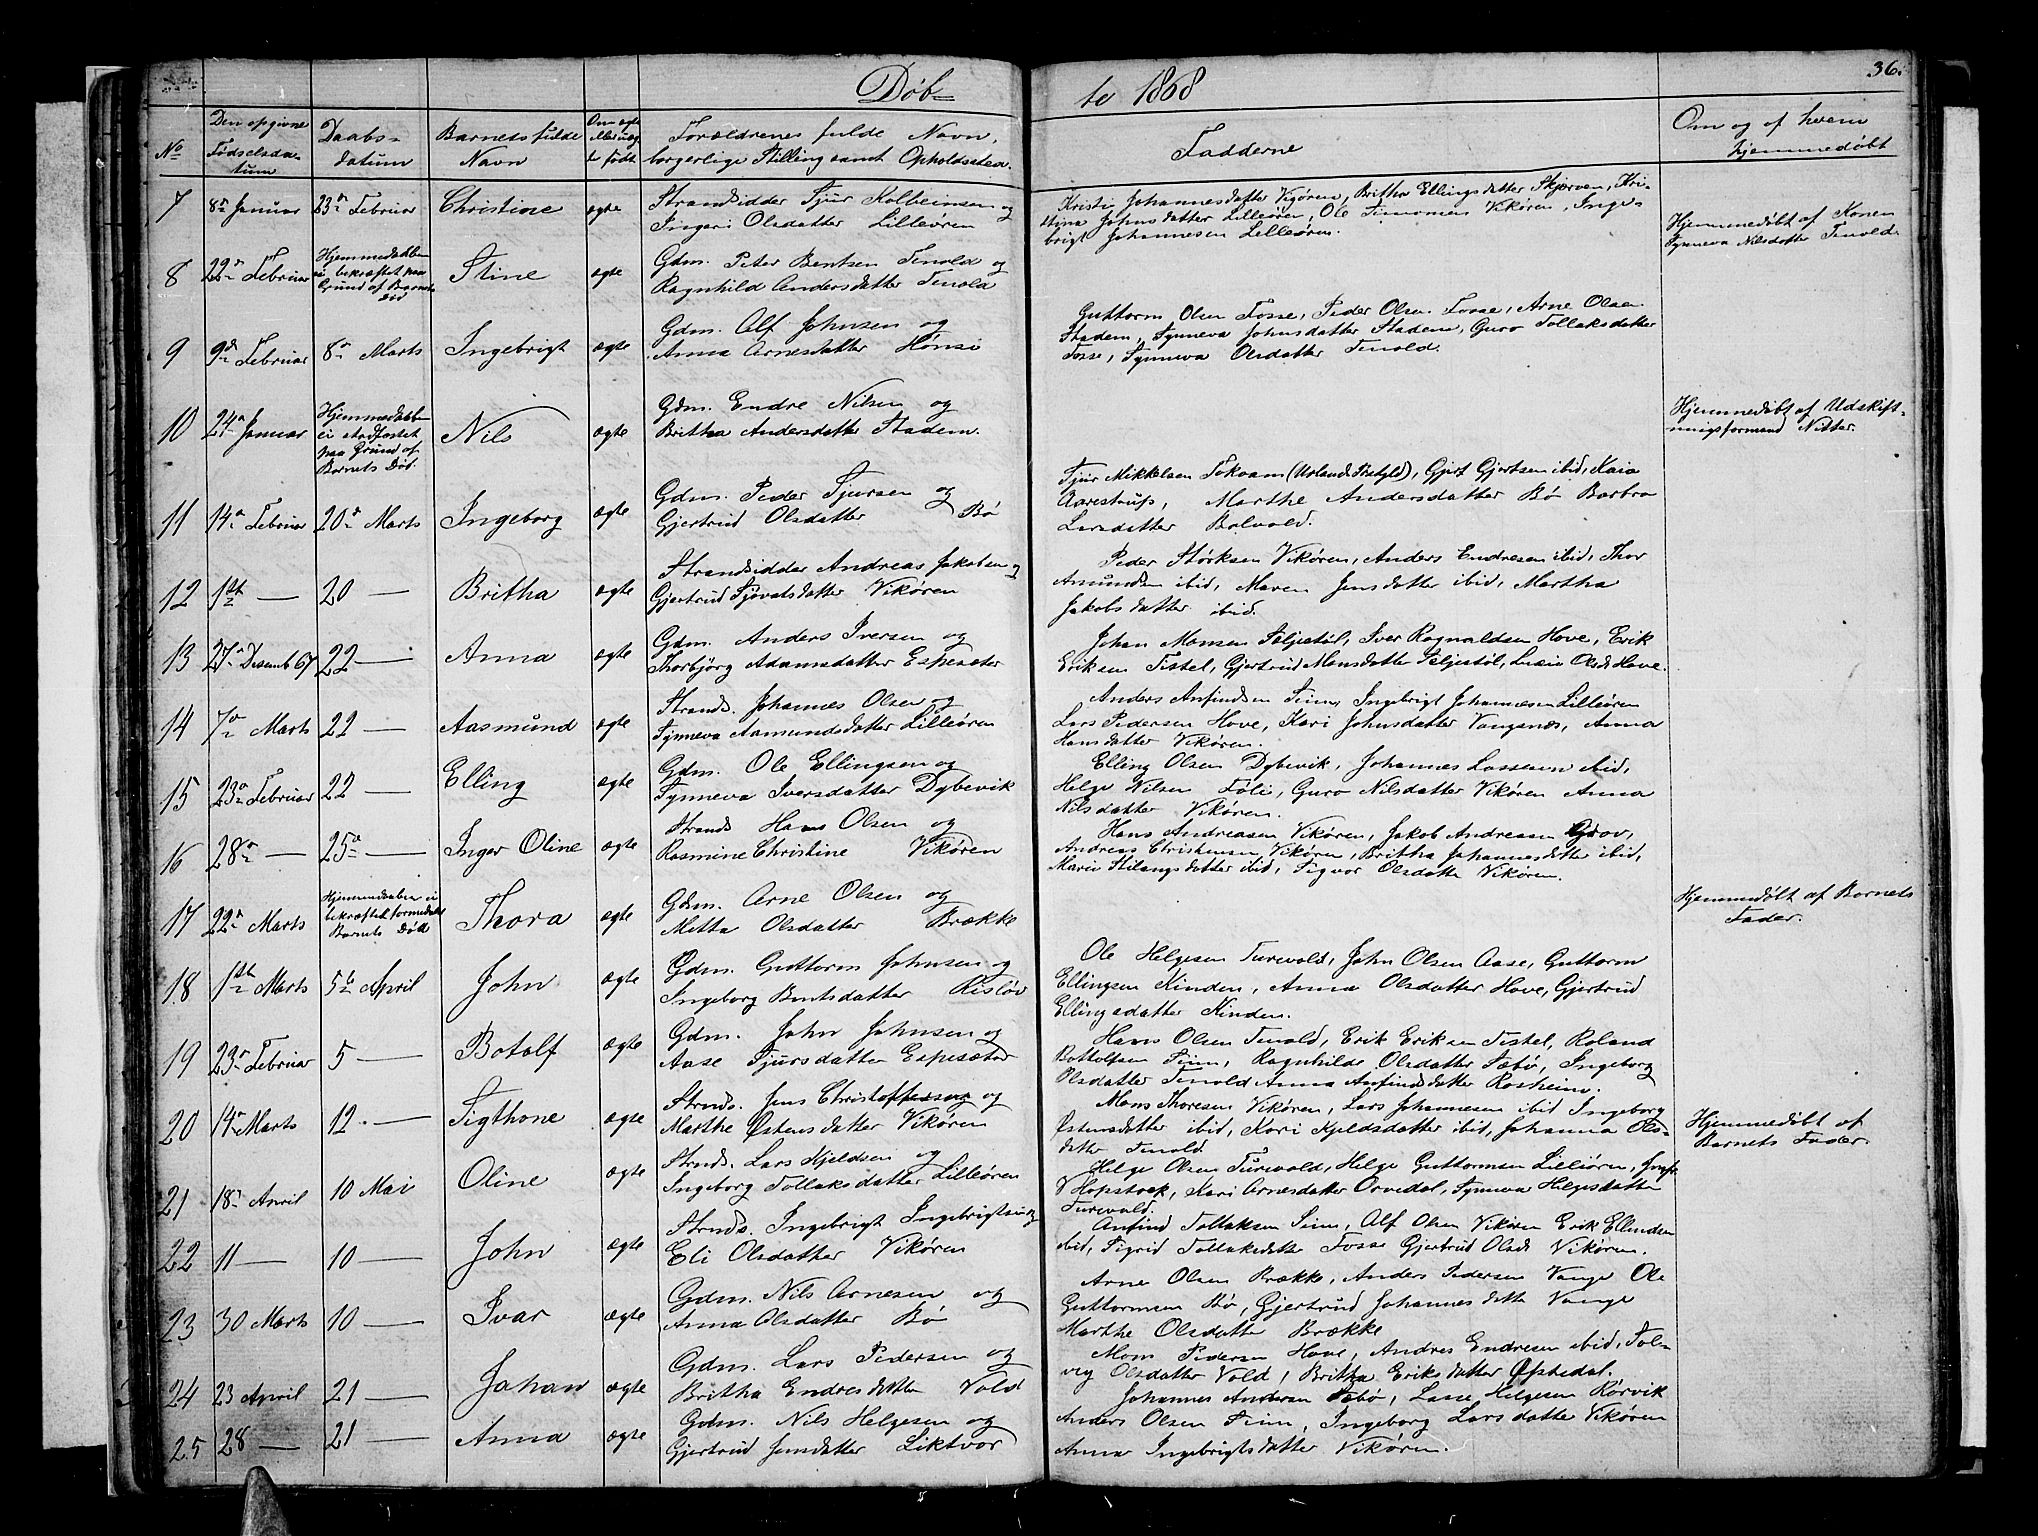 Døb-
te 1868
36.
No
Den opgivne
Fødselsda-
tum
Daabs-
datum
Barnets fulde
Navn
Om ægte
eller uæg-
te født
Forældrenes fulde Navn,
borgerlige Stilling samt Opholdssted
Fadderne
Om og af hvem
hjemmedøbt
7 8de Januar 23de Februar Christine ægte
Strandsidder Sjur Kolbeinsen og
Ingeri Olsdatter Lilleøren
Kristi Johannesdatter Vigören, Britha Ellingsdatter Skjerven, Kri-
stina Johnsdatter Lilleören, Ole Simonsen Vikören, Inge-
brigt Johannesen Lilleören.
8 22de Februar
Hjemmedaaben
ei bekræftet paa
Grund af Barnets
Död
Stine ægte
Gdm. Peter Bentsen Tenold og
Ragnhild Andersdatter Tenold
Hjemmedøbt af Konen
Synneva Nilsdatter Tenold.
9 9de Februar 8de Marts Ingebrigt ægte
Gdm. Alf Johnsen og
Anna Arnesdatter Hønsi
Guttorm Olsen Fosse, Peder Olsen Fosse, Arne Olsen
Stadem, Synneva Johnsdatter Stadem, Guro Tollaksdatter
Fosse, Synneva Olsdatter Tenold.
10 24de Januar
Hjemmedaaben
ei stadfæstet
paa Grund af
Barnets Död.
Nils ægte
Gdm. Endre Nilsen og
Britha Andersdatter Stadem.
Hjemmedøbt af Udskift-
ningsformand Nitter.
11 14de Februar 20de Marts Ingeborg ægte
Gdm. Peder Sjursen og
Gjertrud Olsdatter Bö
Sjur Mikkelsen Tokvam (Urlands Prstgld), Gjert Gjertsen ibid, Kaia
Aarestrup, Marthe Andersdatter Bö Barbra
Larsdatter Bolvold.
12 1ste — 20 — Britha ægte
Strandsidder Andreas Jakobsen og
Gjertrud Sjovatsdatter Vikøren
Peder Störksen Vikören, Anders Endresen ibid, Thor
Amundsen ibid, Maren Jensdatter ibid, Martha
Jakobsdatter ibid.
13 27de Desemb 67 22 — Anna ægte
Gdm. Anders Iversen og
Thorbjörg Adamsdatter Espesæter
Johan Monsen Seljestöl, Iver Ragnaldsen Hove, Erik
Eriksen Tistel, Gjertrud Monsdatter Seljestöl, Olsd. Hove.
14 7de Marts 22 — Aasmund ægte
Strands. Johannes Olsen og
Synneva Aamundsdatter Lilleören
Anders Anfindsen Sinn, Ingebrigt Johannesen Lilleören
Lars Pedersen Hove, Kari Johnsdatter Vangsnes, Anna
Hansdatter Vikøren.
15 23de Februar 22 — Elling ægte
Gdm. Ole Ellingsen og
Synneva Iversdatter Dybevik
Elling Olsen Dybevik, Johannes Lassesen ibid,
Helge Nilsen Föli, Guro Nilsdatter Vikören Anna
Nilsdatter Vikøren.
16 28de — 25de — Inger Oline ægte
Strands Hans Olsen og
Rasmine Christine Vikøren
Hans Andreasen Vikören, Jakob Andreasen Grov,
Andreas Christensen Vikören, Britha Johannesdatter ibid,
Marie datter ibid, Sigvor Olsdatte Vikøren.
17 22de Marts
Hjemmedaaben ei
bekræftet formedelst
Barnets Död
Thora ægte
Gdm. Arne Olsen og
Metta Olsdatter Brække
Hjemmedøbt af Barnets
Fader.
18 1ste Marts 5te April John ægte
Gdm. Guttorm Johnsen og
Ingeborg Bentsdatter Risløv
Ole Helgesen Turevold, John Olsen Aase, Guttorm
Ellingsen Kinden, Anna Olsdatter Hove, Gjertrud
Ellingsdatter Kinden.
19 23de Februar 5 — Botolf ægte
Gdm. John Johnsen og
Aase Sjursdatter Espesæter
Hans Olsen Tenold, Erik Eriksen Tistel, Roland
Bottolfsen Sinn, Ragnhilde Olsdatter Sæbö, Ingeborg
Olsdatter Tenold Anna Anfindsdatter Rosheim.
20 14de Marts 12. — Sigthone ægte
Strnds. Jens Christoffersen og
Marthe Østensdatter Vikøren
Mons Thoresen Vikøren, Lars Johannesen ibid Ingeborg
Østensdatter ibid, Kari Kjeldsdatter ibid, Johanna Ols-
datter Tenold.
Hjemmedøbt af
Barnets Fader.
21 18de April 10 Mai Oline ægte
Strnds. Lars Kjeldsen og
Ingeborg Tollaksdatter Lilleören
Helge Olsen Turevold, Helge Guttormsen Lilleören, Jmfr
Hopstock, Kari Arnesdatter Orvedal, Synneva Helgesdatter
Turevold.
22 11 — 10 — John ægte
Strnds. Ingebrigt Ingebrigtsen og
Eli Olsdatter Vikøren
Anfind Tollaksen Sinn, Alf Olsen Vikøren Erik Ellendsen
ibid, Sigrid Tollaksdatter Fosse Gjertrud Olsd. Vikøren.
23 30 Marts 10 — Ivar ægte
Gdm. Nils Arnesen og
Anna Olsdatter Bö
Arne Olsen Brække, Anders Pedersen Vange Ole
Guttormsen Bö, Gjertrud Johannesdatte Vange
Marthe Olsdatte Brække
24 23 April 21 — Johan ægte
Gdm. Lars Pedersen og
Britha Endresdatter Vold
Mons Pedersen Hove, Andres Endresen ibid, Sol-
vig Olsdatter Vold, Britha Eriksdatter Ofstedal.
25 28 — 21 — Anna ægte
Gdm. Nils Helgesen og
Gjertrud Jensdatter Liktvor
Johannes Andersen Sæbö, Lasse Helgesen Rörvik
Anders Olsen Sinn, Ingeborg Larsdatter Vikøren
Anna Ingebrigtsdatter Vikøren.